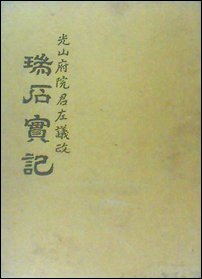 光山府院君左議政
瑞石實記